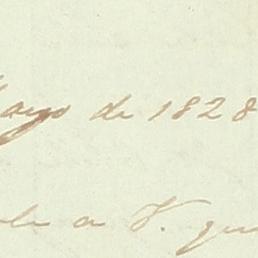 Mayo de 1828
a V. que